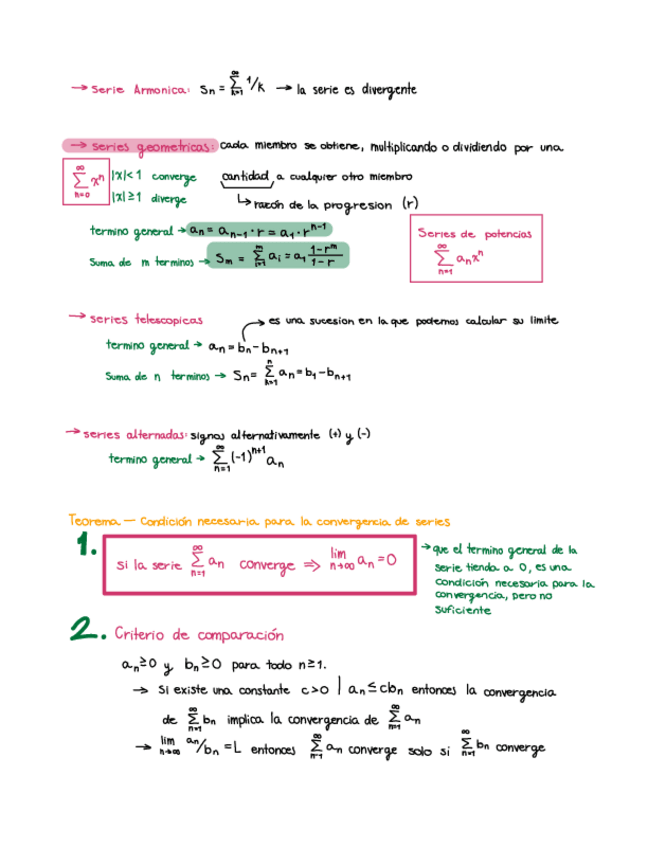 → Serie Armonica: Sn = ∞∑k=1 1/k → la serie es divergente
→ series geometricas: cada miembro se obtiene, multiplicando o dividiendo por una
cantidad a cualquier otro miembro
↳ razón de la progresion (r)
∞∑n=0 xⁿ
|x|<1 converge
|x|≥1 diverge
termino general → aₙ = aₙ₋₁ · r = a₁ · rⁿ⁻¹
Suma de m terminos → Sₘ = m∑i=1 aᵢ = a₁ (1-rᵐ)/(1-r)
Series de potencias
∞∑n=1 aₙxⁿ
→ series telescopicas
→ es una sucesion en la que podemos calcular su limite
termino general → aₙ = bₙ - bₙ₊₁
Suma de n terminos → Sn = n∑k=1 aₙ = b₁ - bₙ₊₁
→ series alternadas: signos alternativamente (+) y (-)
termino general → ∞∑n=1 (-1)ⁿ⁺¹ aₙ
Teorema – Condición necesaria para la convergencia de series
1.
si la serie ∞∑n=1 aₙ converge ⇒ lim n→∞ aₙ = 0
→ que el termino general de la
serie tienda a 0, es una
condición necesaria para la
convergencia, pero no
suficiente
2. Criterio de comparación
aₙ≥0 y bₙ≥0 para todo n≥1.
→ Si existe una constante c>0 | aₙ ≤ cbₙ entonces la convergencia
de ∞∑n=1 bₙ implica la convergencia de ∞∑n=1 aₙ
→ lim n→∞ aₙ/bₙ = L entonces ∞∑n=1 aₙ converge solo si ∞∑n=1 bₙ converge